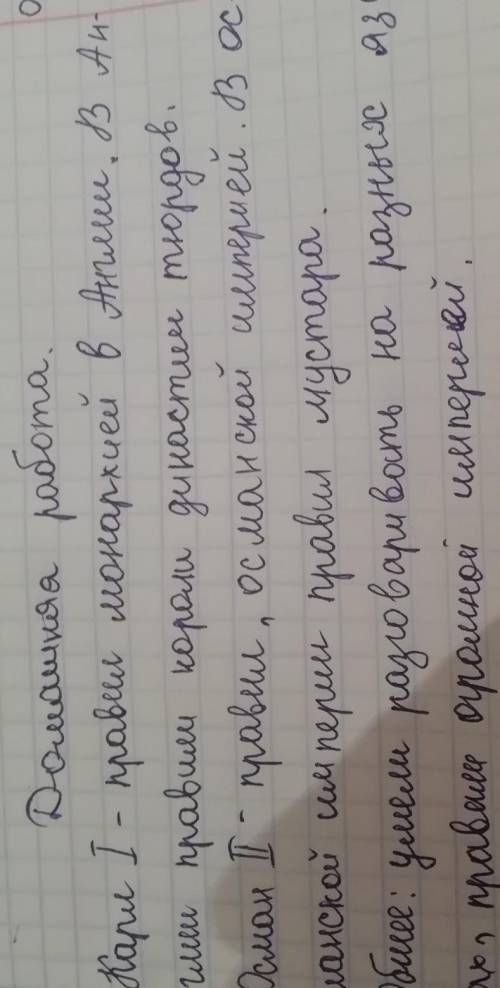 Домашняя работа.
Карл I - правил монархией в Англии. В Ан-
глии правили короли династии тюрдов.
Осман II - правил, османской империей. В ос-
манской империи правил мустара.
Общее: умели разговаривать на разных яз
ах, правили огромной империей.